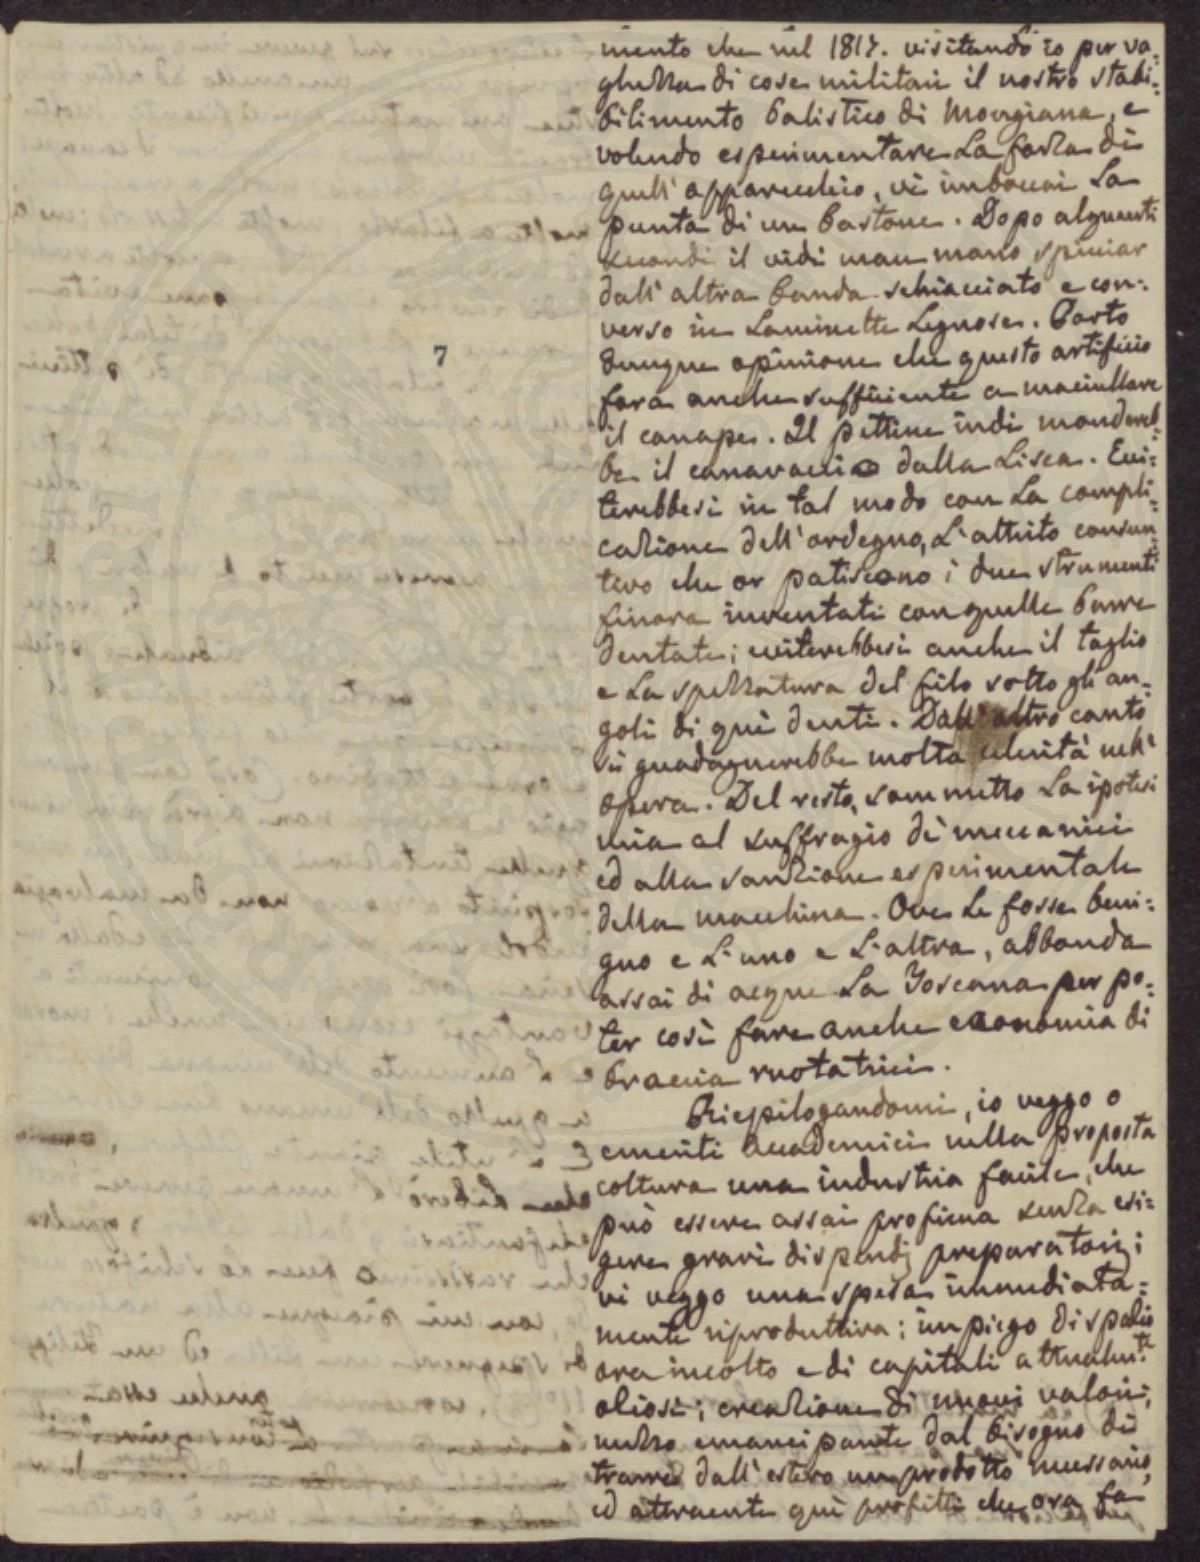 7
mento che nel 1817. visitando io per va=
ghezza di cose militari il nostro stabi=
bilimento balistico di Mongiana, e
volendo esperimentare la forza di
quell' apparecchio, vi imboccai la
punta di un bastone. Dopo alquanti
secondi il vidi man mano spicciar
dall' altra banda schiacciato e con=
verso in laminette legnose. Porto
dunque opinione che questo artificio
fora anche sufficiente a maciullare
il canape. Il pettine indi mondereb=
be il canavaccio dalla lisca. Evi=
terebbesi in tal modo con la compli=
cazione dell' ordegno, l' attrito consun=
tivo che or patiscono i due strumenti
finora inventati con quelle barre
dentate; eviterebbesi anche il taglio
e la spezzatura del filo sotto gli an=
goli di que' denti. Dall' altro canto
si guadagnerebbe molta celerità nell'
opera. Del resto, sommetto la ipotesi
mia al suffragio de' meccanici
ed alla sanzione esperimentale
della macchina. Ove le fosse beni=
gno e l' uno e l' altra, abbonda
assai di acque la Toscana per po=
ter così fare anche economia di
braccia ruotatrici.
Riepilogandomi, io veggo o
emeriti Accademici nella proposta
coltura una industria facile, che
può essere assai proficua senza esi=
gere gravi dispendj preparatorj;
vi veggo una spesa immediata=
mente riproduttiva; impiego di spazio
ora incolto e di capitali attualm.te
oziosi; creazione di nuovi valori;
mezzo emancipante dal bisogno di
trarre dall' estero un prodotto necessario,
ed attraente que' profitti che ora fa